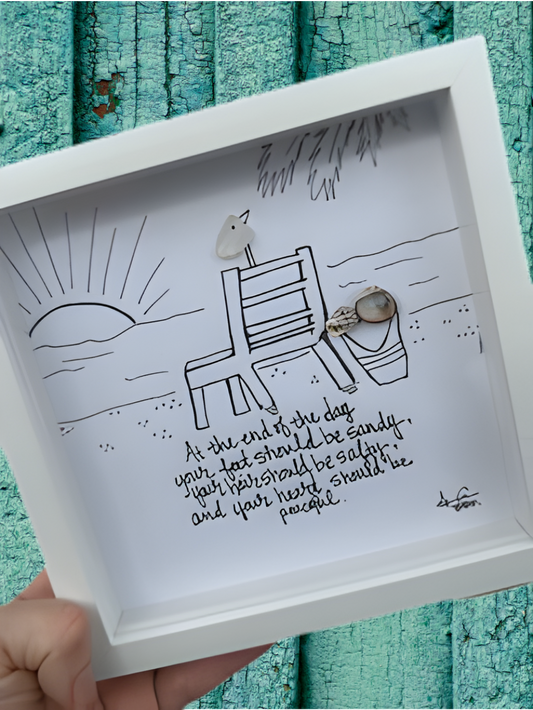 At the end of the day
your feet should be sandy,
your hair should be salty,
and your heart should be